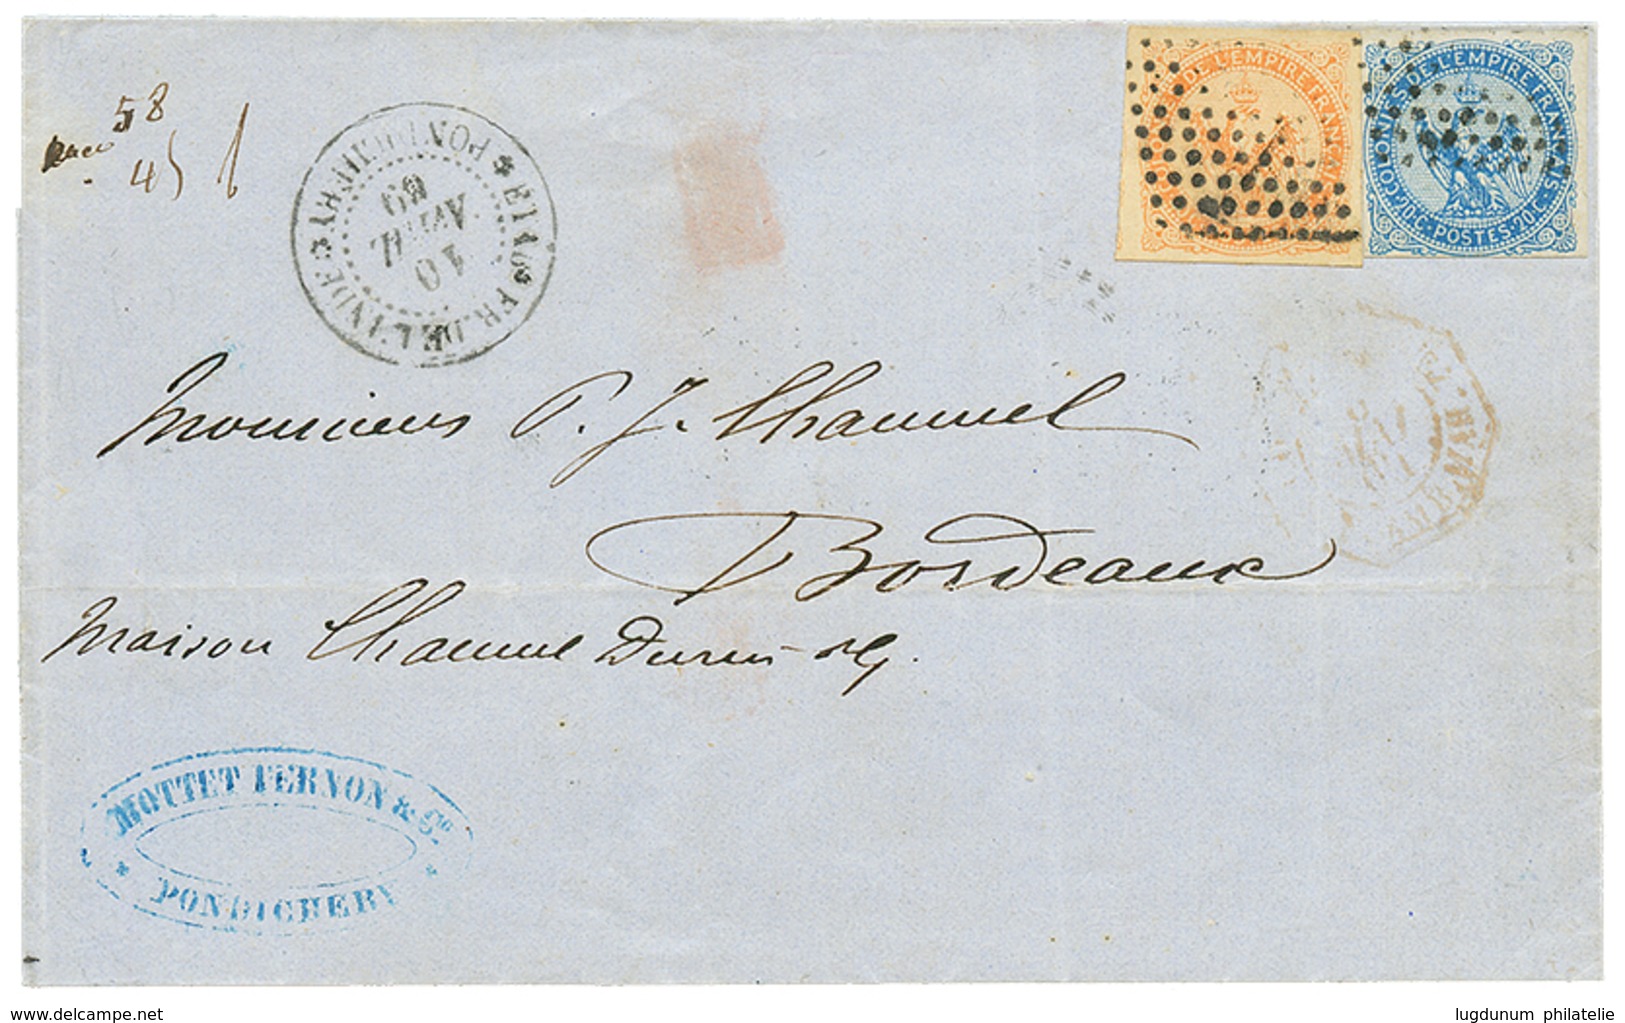 58
45
ETAB FR. DE L'INDE PONDICHERY
10
AVRIL
69
DE L'EMPIRE FRANÇAI
COLONIES DE L'EMPIRE FRANÇAIS
20C. POSTES 20C.
Monsieur P. J. Chaumel
Bordeaux
Maison Chaumel Durin
MOTTET VERNON & Cº
PONDICHERY
www.delcampe.net
lugdunum philatelie